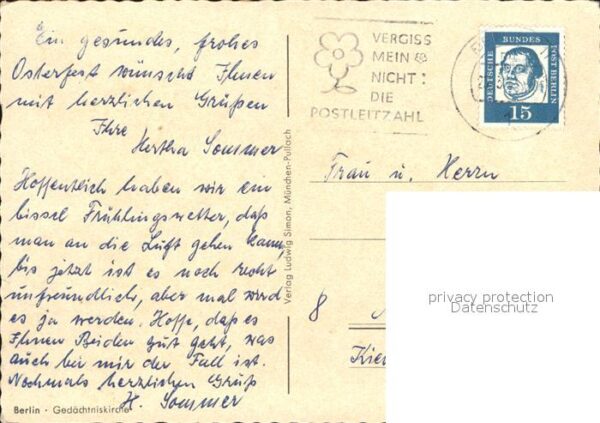 Ein gesundes, frohes
Osterfest wünscht Ihnen
mit herzlichen Grüßen
Ihre
Hertha Sommer
Hoffentlich haben wir ein
bissel Frühlingswetter, daß
man an die Luft gehen kann,
bis jetzt ist es noch recht
unfreundlich, aber mal wird
es ja werden. Hoffe, daß es
Ihnen Beiden gut geht, was
auch bei mir der Fall ist.
Nochmals herzlichen Gruß
H. Sommer
Berlin · Gedächtniskirche
Verlag Ludwig Simon, München-Pullach
VERGISS
MEIN
NICHT:
DIE
POSTLEITZAHL
DEUTSCHE
BUNDES
POST BERLIN
15
Frau u. Herrn
8
Kie
privacy protection
Datenschutz